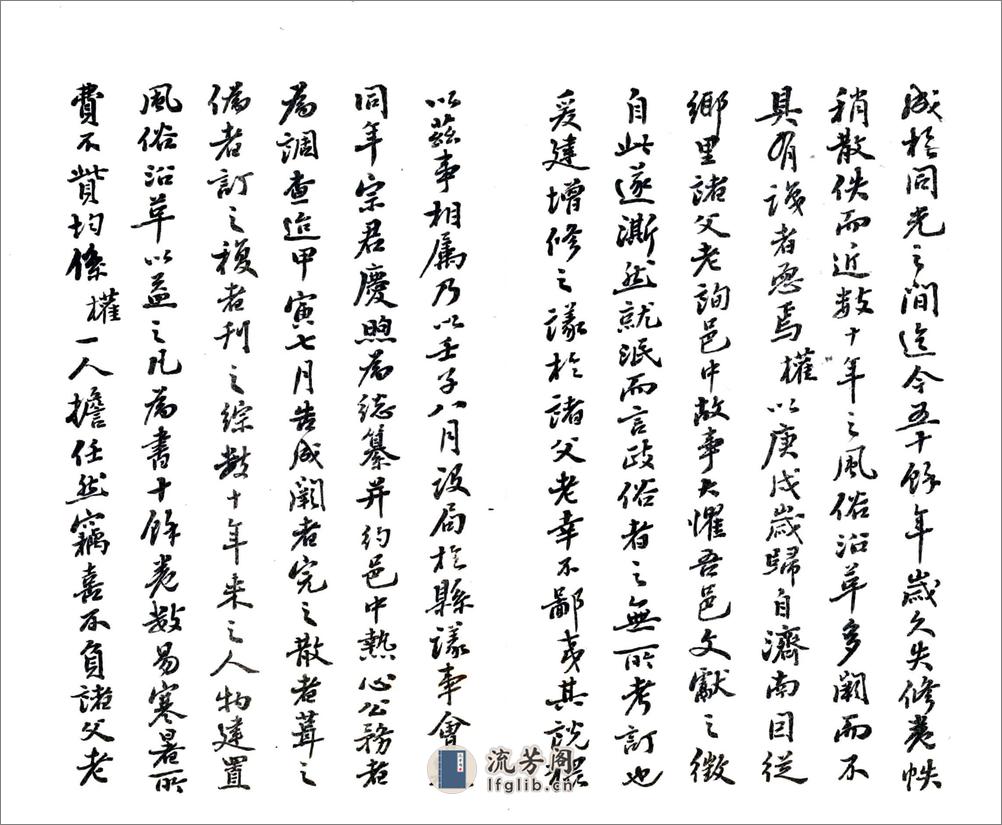 成於同光之間迄今五十餘年歲久失修卷帙
稍散佚而近數十年之風俗沿革多闕而不
具有識者憂焉權以庚戌歲歸自濟南因從
鄉里諸父老詢邑中故事大懼吾邑文獻之徵
自此遂澌然就泯而言政俗者之無所考訂也
爰建增修之議於諸父老幸不鄙夷其說
以茲事相屬乃以壬子八月設局於縣議事會
同年宗君慶煦為總纂并約邑中熱心公務者
為調查迨甲寅七月告成闕者完之散者葺之
偽者訂之複者刊之綜數十年來之人物建置
風俗沿革以益之凡為書十餘卷數易寒暑所
費不貲均係權一人擔任然竊喜不負諸父老
流芳阁
lfglib.cn